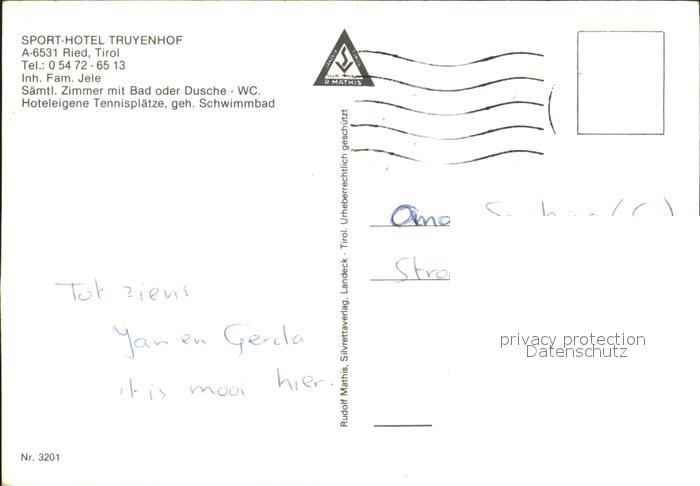 SPORT-HOTEL TRUYENHOF
A-6531 Ried, Tirol
Tel.: 0 54 72 - 65 13
Inh. Fam. Jele
Sämtl. Zimmer mit Bad oder Dusche - WC.
Hoteleigene Tennisplätze, geh. Schwimmbad
R MATHIS
Rudolf Mathis, Silvrettaverlag, Landeck - Tirol. Urheberrechtlich geschützt
Tot ziens
Jan en Gerda
't is mooi hier.
privacy protection
Datenschutz
Nr. 3201